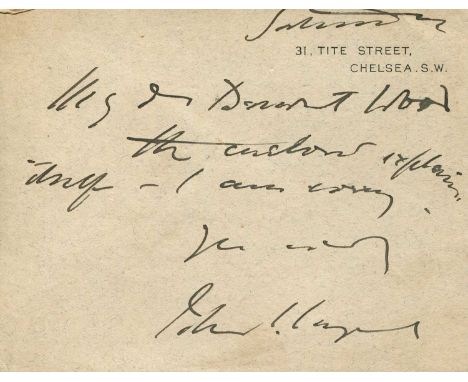 Saturday
31, TITE STREET,
CHELSEA. S.W.
My dr Derwent Wood
The enclosed explains
itself – I am sorry.
Yrs
John S. Sargent